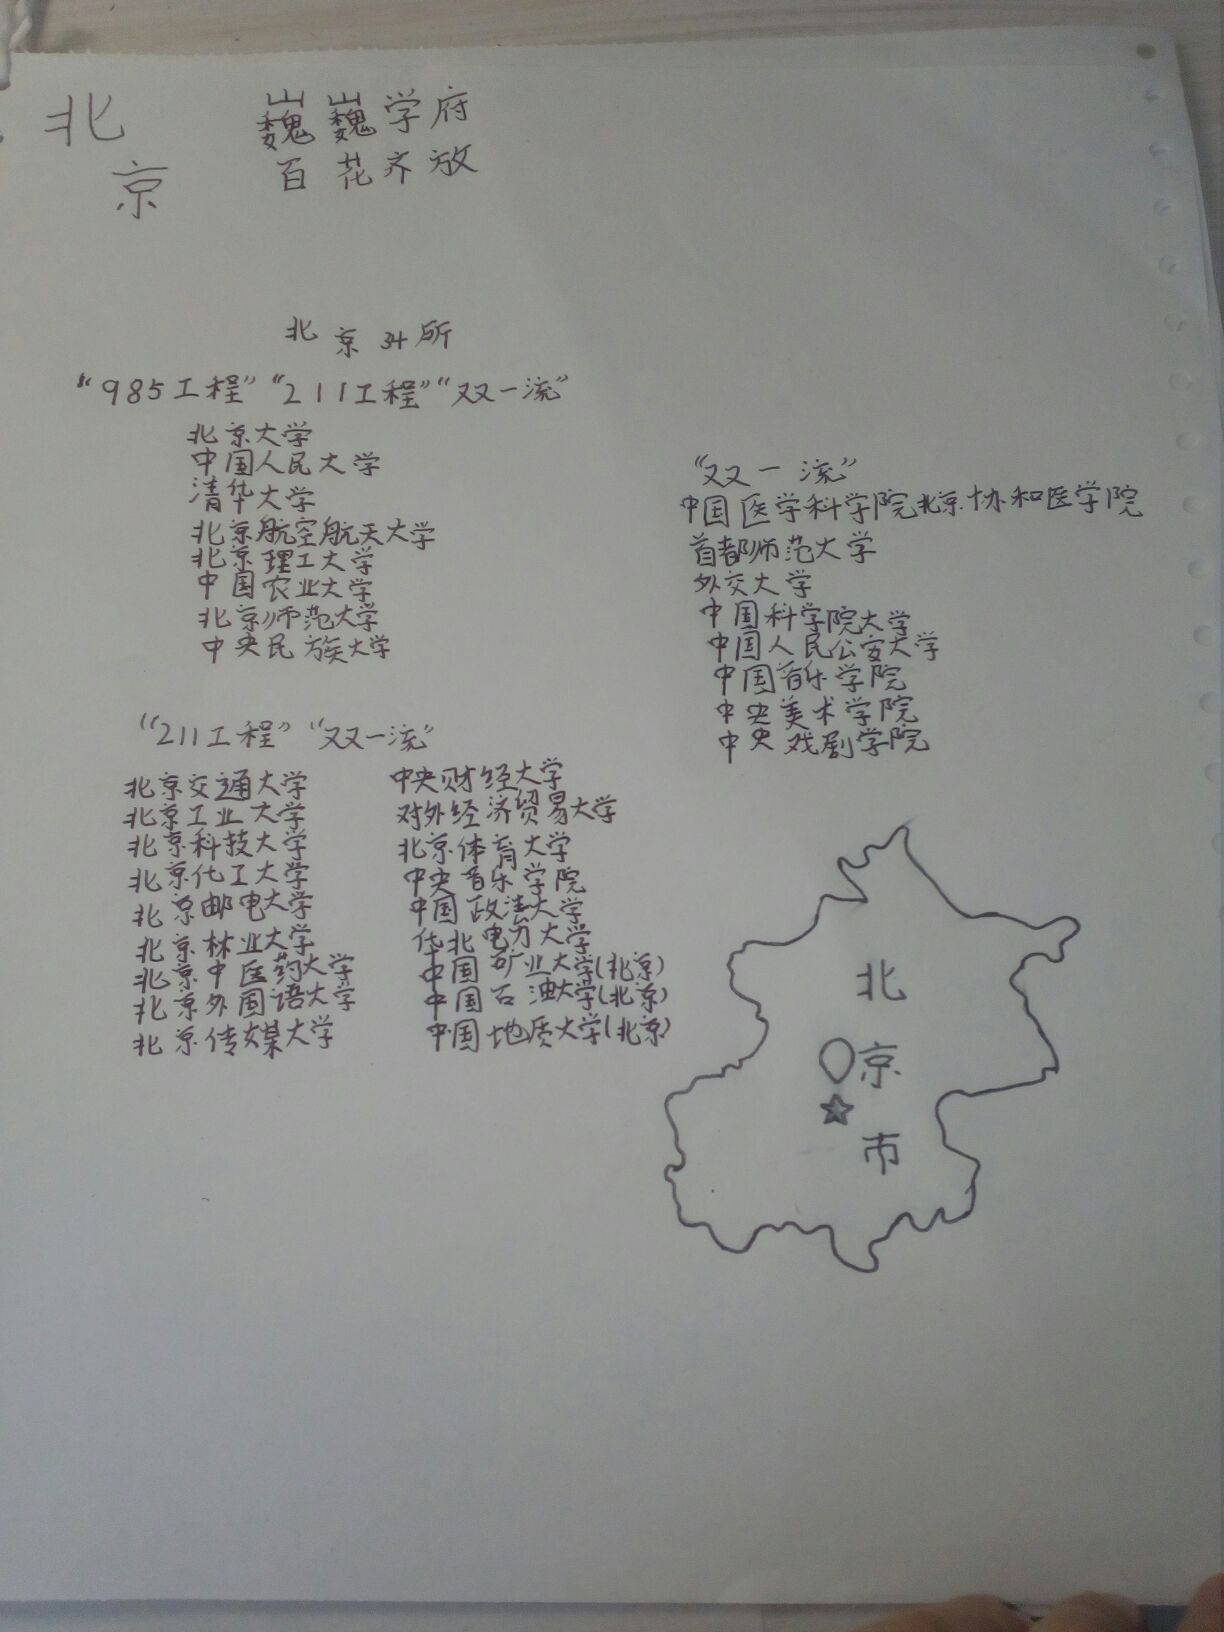 北京
巍巍学府
百花齐放
北京34所
“985工程”“211工程”“双一流”
北京大学
中国人民大学
清华大学
北京航空航天大学
北京理工大学
中国农业大学
北京师范大学
中央民族大学
“211工程”“双一流”
北京交通大学
北京工业大学
北京科技大学
北京化工大学
北京邮电大学
北京林业大学
北京中医药大学
北京外国语大学
北京传媒大学
中央财经大学
对外经济贸易大学
北京体育大学
中央音乐学院
中国政法大学
华北电力大学
中国矿业大学(北京)
中国石油大学(北京)
中国地质大学(北京)
“双一流”
中国医学科学院北京协和医学院
首都师范大学
外交大学
中国科学院大学
中国人民公安大学
中国音乐学院
中央美术学院
中央戏剧学院
北
京
市